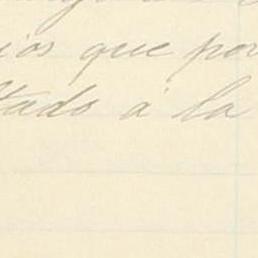 ios que por
tado á la